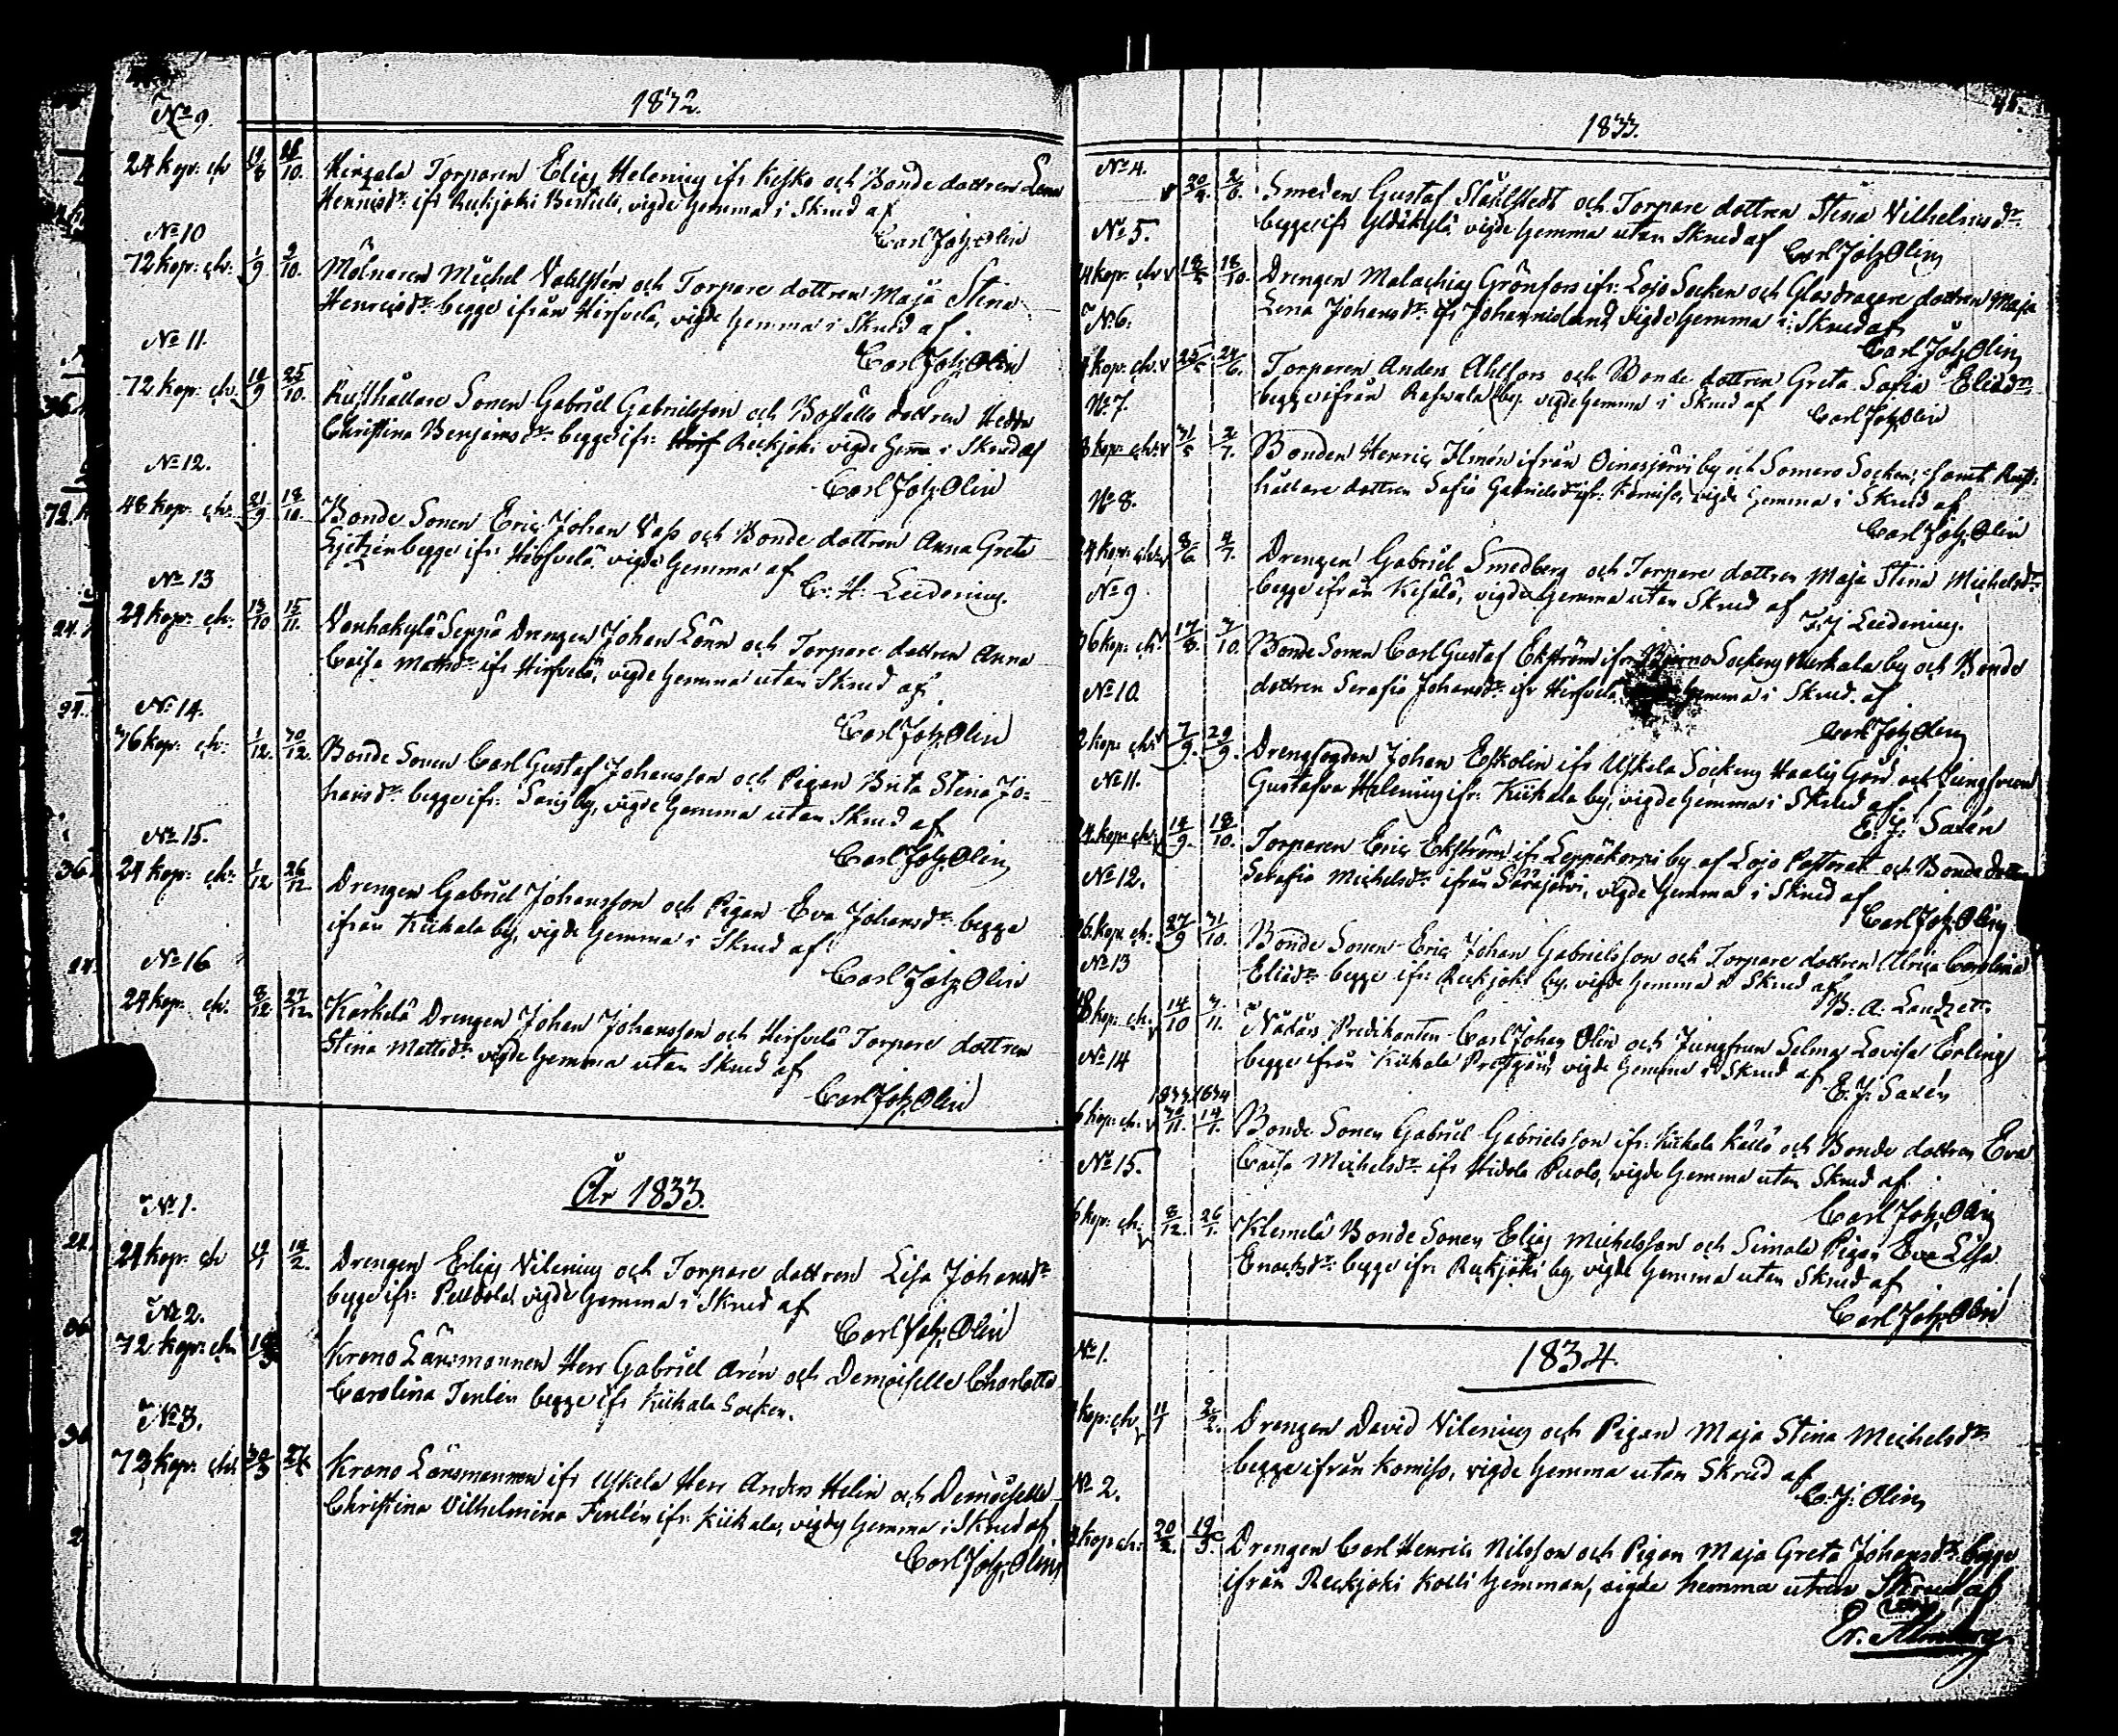 1832.
No 9.
24 kop: ch 19/8 28/10. Hirsala Torparen Elias Helenius ifr Kisko och Bonde dottren Lena
Henricsdr ifr Rekjoki Bertula, vigde hemma i Skrud af
Carl Joh. Olin
No 10
72 kop: ch: 1/9 2/10. Mölnaren Michel Vahlstén och Torpare dottren Maja Stina
Henricsdr begge ifrån Hirsvelä, vigde hemma i Skrud af
Carl Joh. Olin
No 11.
72 kop: ch 16/9 25/10. Rusthållare Sonen Gabriel Gabrielsson och Boställs dottren Hedda
Christina Benjamsdr begge ifr: Rekjoki vigde hemma i Skrud af
Carl Joh. Olin
No 12.
48 kop: ch: 21/9 18/10. Bonde Sonen Eric Johan Vass och Bonde dottren Anna Greta
begge ifr: Hirsvelä vigde hemma af
C: H: Lidenius.
No 13
24 kop: ch: 13/10 15/11. Vanhakylä Seppä Drengen Johan Lönn och Torpare dottren Anna
Caisa Mattsdr ifr Hirsvelä, vigde hemma utan Skrud af
Carl Joh. Olin
No 14.
36 kop: ch: 1/12. 30/12. Bonde Sonen Carl Gustaf Johansson och Pigan Brita Stina Jo=
hansdr begge ifr: Saris by, vigde hemma utan Skrud af
Carl Joh. Olin
No 15.
24 kop: ch: 1/12 26/12 Drengen Gabriel Johansson och Pigan Eva Johansdr begge
ifrån Kiikala by, vigde hemma i Skrud af
Carl Joh. Olin
No 16
24 kop: ch. 8/12 27/12. Kärkelä Drengen Johan Johansson och Hirsvelä Torpare dottren
Stina Mattsdr vigde hemma utan Skrud af
Carl Joh. Olin
År 1833.
No 1.
24 kop: ch 14/2. Drengen Elias Vilenius och Torpare dottren Lisa Johansdr
begge ifr: vigde hemma i Skrud af
Carl Joh. Olin
No 2.
72 kop: ch Krono Länsmannen Herr Gabriel Arén och Demoiselle Charlotta
Carolina Fenlén begge ifr Kiikala Socken.
No 3.
72 kop: ch: 30/3 Krono Länsmannen ifr Uskela Herr Anders Helin och Demoiselle
Christina Vilhelmina Fenlén ifr: Kiikala, vigde hemma i Skrud af
Carl Joh. Olin
1833.
No 4.
20/4. 2/6. Smeden Gustaf Stählstedt och Torpare dottren Stina Vilhelmsdr
begge ifr Yldäkylä vigde hemma utan Skrud af
Carl Joh Olin
No 5.
kop: ch 18/5 18/10. Drengen Malachias Grönfors ifr: Lojo Socken och Glasdragare dottren Maja
Lena Johansdr ifr Johannislund, vigde hemma i Skrud af
Carl Joh. Olin
No 6.
kop: ch. 25/5 24/6. Torparen Anders Ahlfors och Bonde dottren Greta Sofia Eliædr
begge ifrån Rahwala by vigde hemma i Skrud af
Carl Joh. Olin
No 7.
kop: ch: 31/5 2/7. Bonden Henric Ilmén ifrån Oinasjärvi by och Somero Socken, samt Rust=
hållare dottren Sofia Gabrielsdr ifr: Komiso, vigde hemma i Skrud af
Carl Joh. Olin
No 8.
24 kop: ch: 8/6 4/7. Drengen Gabriel Smedberg och Torpare dottren Maja Stina Michelsdr
begge ifrån vigde hemma utan Skrud af
Lidenius.
No 9
36 kop: ch: 17/8. 3/10. Bonde Sonen Carl Gustaf Ekström ifr: Bjerno Sockens by och Bonde
dottren Serafia Johansdr ifr Hirsvelä hemma i Skrud af
Carl Joh Olin
No 10.
kop: ch: 7/9. 29/9. Drengfogden Johan Eskolin ifr Uskela Sockens Haalis Gård och Jungfrun
Gustafva Helenius ifr: Kiikala by, vigde hemma i Skrud af
E. J. Saxén
No 11.
24 kop: ch: 14/9. 18/10. Torparen Eric Ekström ifr Leppäkorpi by af Lojo Pastorat och Bonde dottren
Serafia Michelsdr ifrån Särajärvi, vigde hemma i Skrud af
Carl Joh. Olin
No 12.
36 kop: ch: 27/9 31/10. Bonde Sonen Eric Johan Gabrielsson och Torpare dottren Ulrica Carolina
Eliædr begge ifr: Rekjoki by, vigde hemma i Skrud af
B. A. Landzett.
No 13
48 kop: ch: 14/10 3/11. Nådårs Predikanten Carl Johan Olin och Jungfrun Selma Lovisa Erling
begge ifrån Kiikala Prestgård, vigde hemma i Skrud af
E. J. Saxén
No 14
1833. 1834
kop: ch: 30/11. 14/1. Bonde Sonen Gabriel Gabrielsson ifr: Kiikala Källö och Bonde dottren Eva
Caisa Michelsdr ifr Hidola Puolo, vigde hemma utan Skrud af
Carl Joh. Olin
No 15.
kop: ch: 8/12. 26/1. Klemelä Bonde Sonen Elias Michelsson och Simola Pigan Eva Lisa
Enocksdr begge ifr: Rekjoki by, vigde hemma utan Skrud af
Carl Joh. Olin
1834.
No 1.
kop: ch 11/1 2/2. Drengen David Vilenius och Pigan Maja Stina Michelsdr
begge ifrån Komiso, vigde hemma utan Skrud af
C. J. Olin
No 2.
kop: ch: 20/2. 19/3. Drengen Carl Henric Nilsson och Pigan Maja Greta Johansdr begge
ifrån Rekjoki Kolli hemman, vigde hemma utan Skrud, af